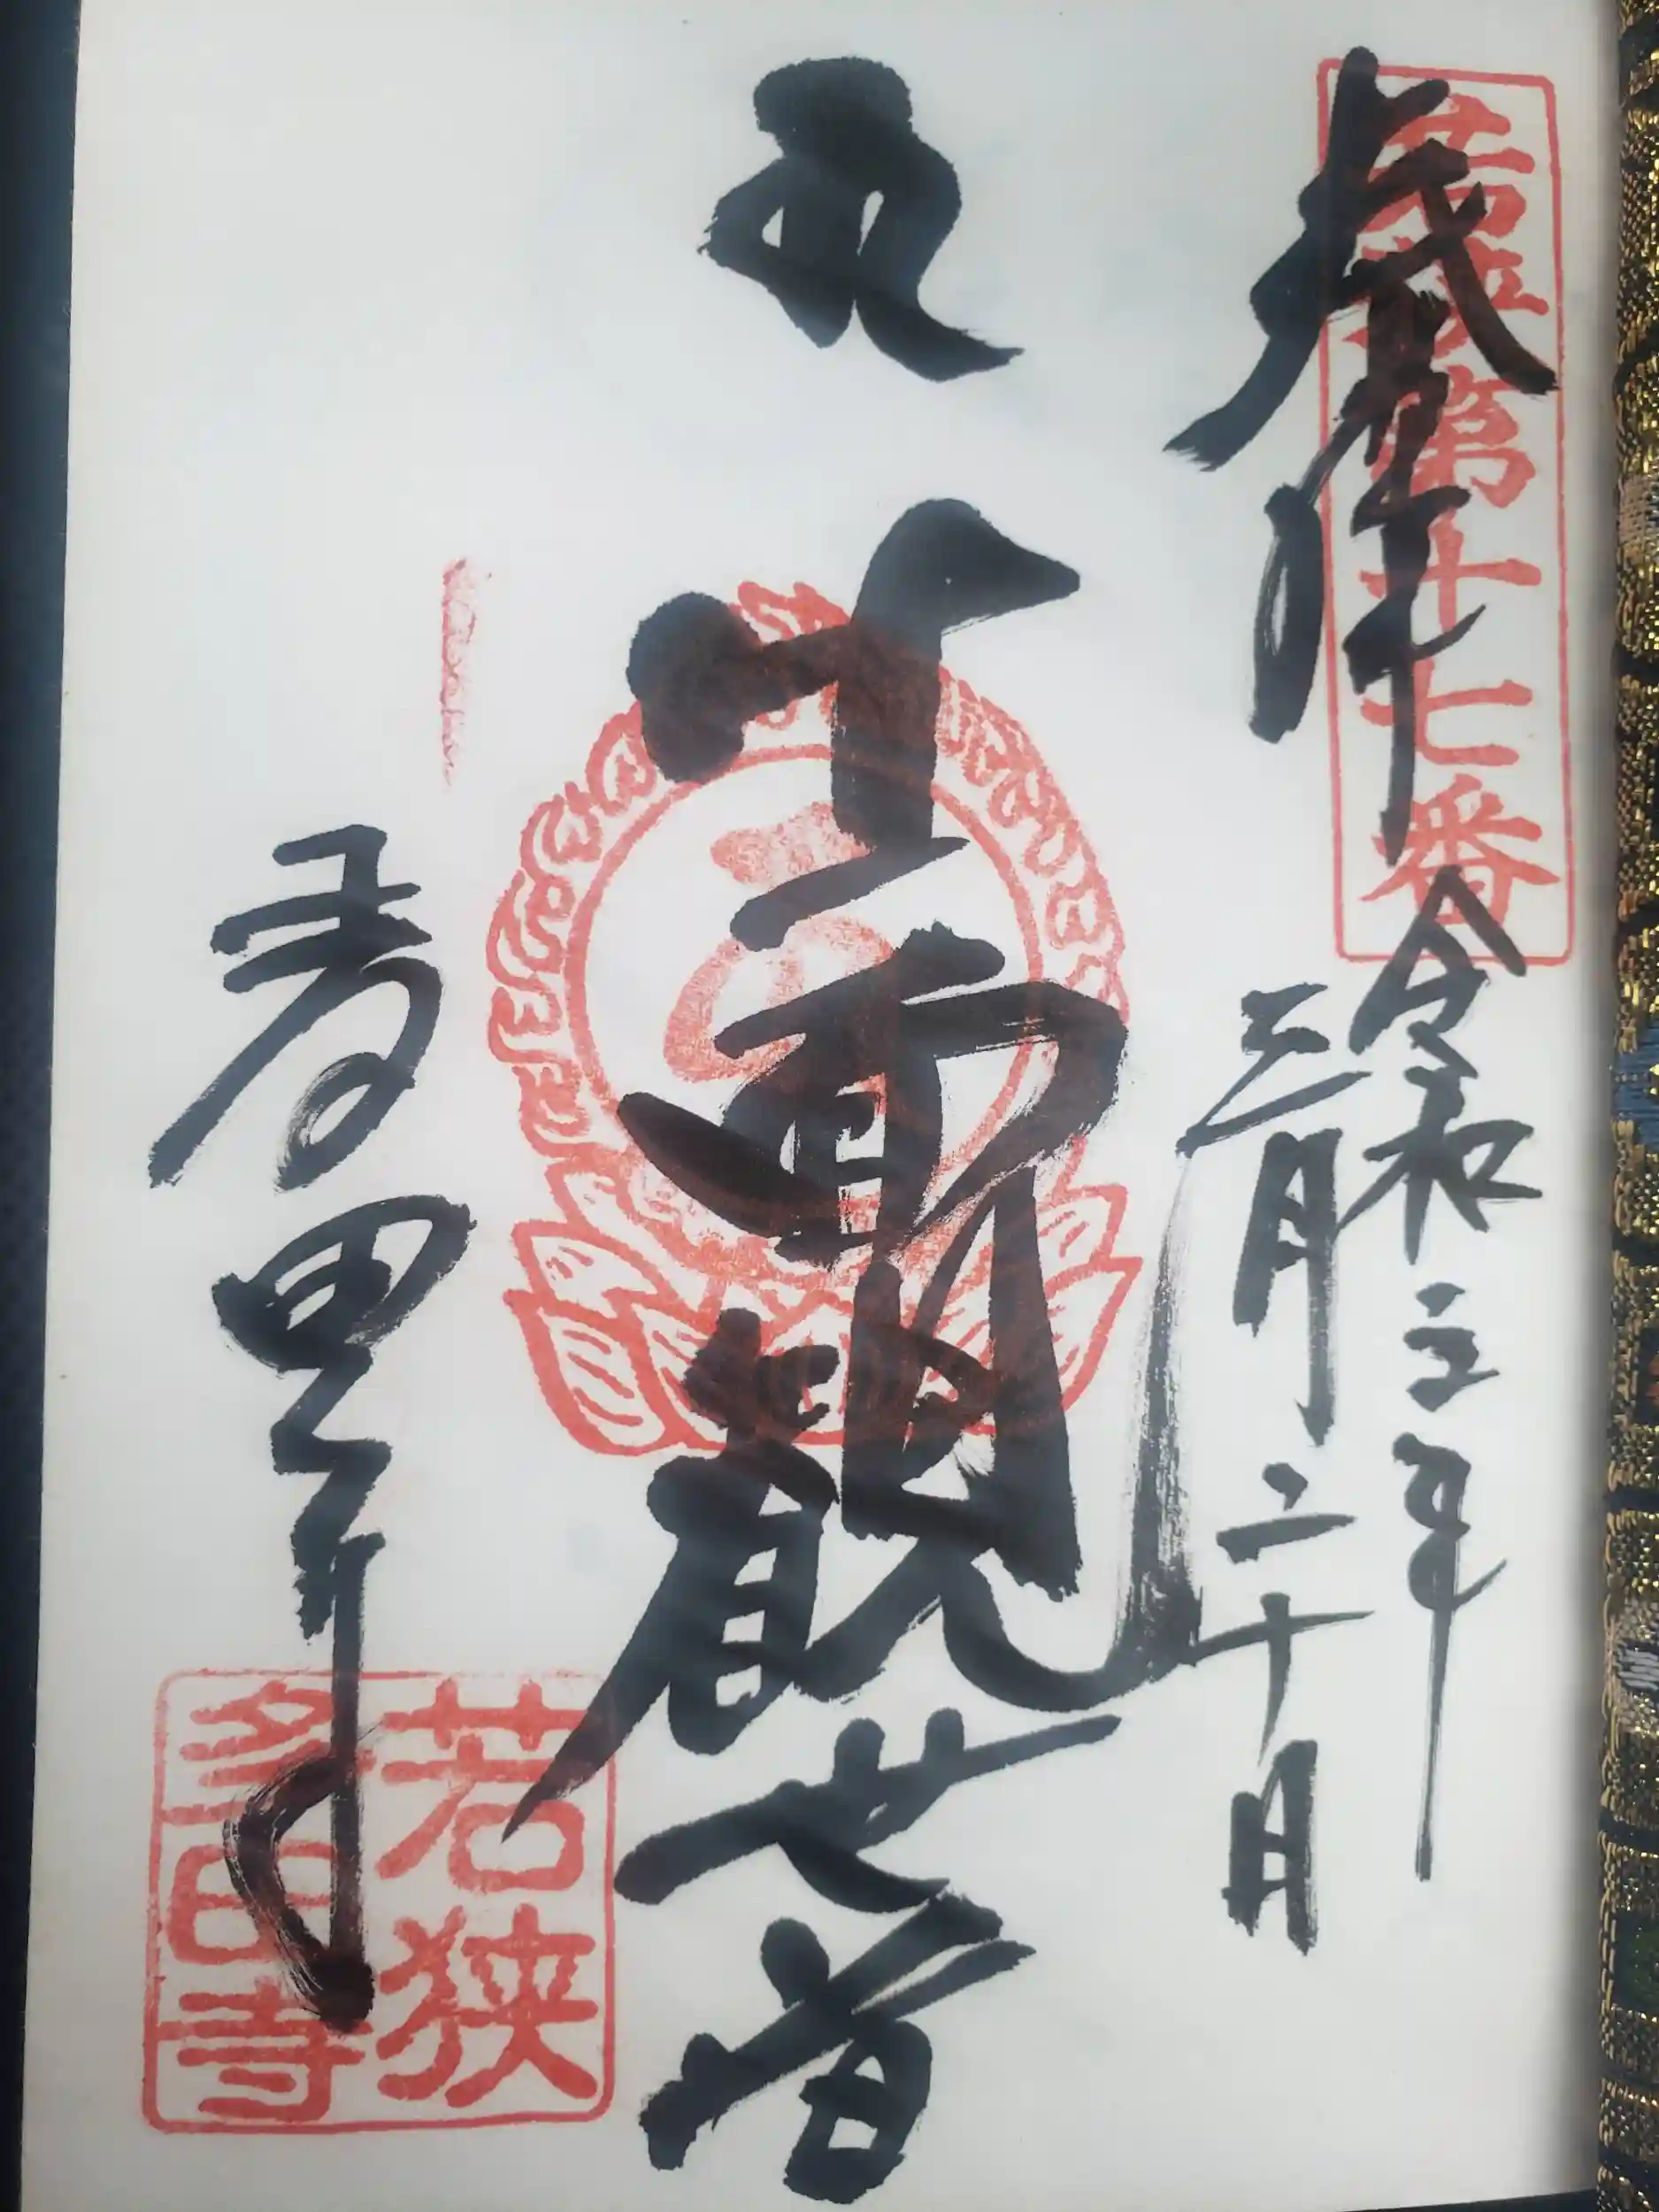 若狭第十七番
奉拝
令和三年
三月二十日
十一面観世音
多田寺
若狭
多田寺